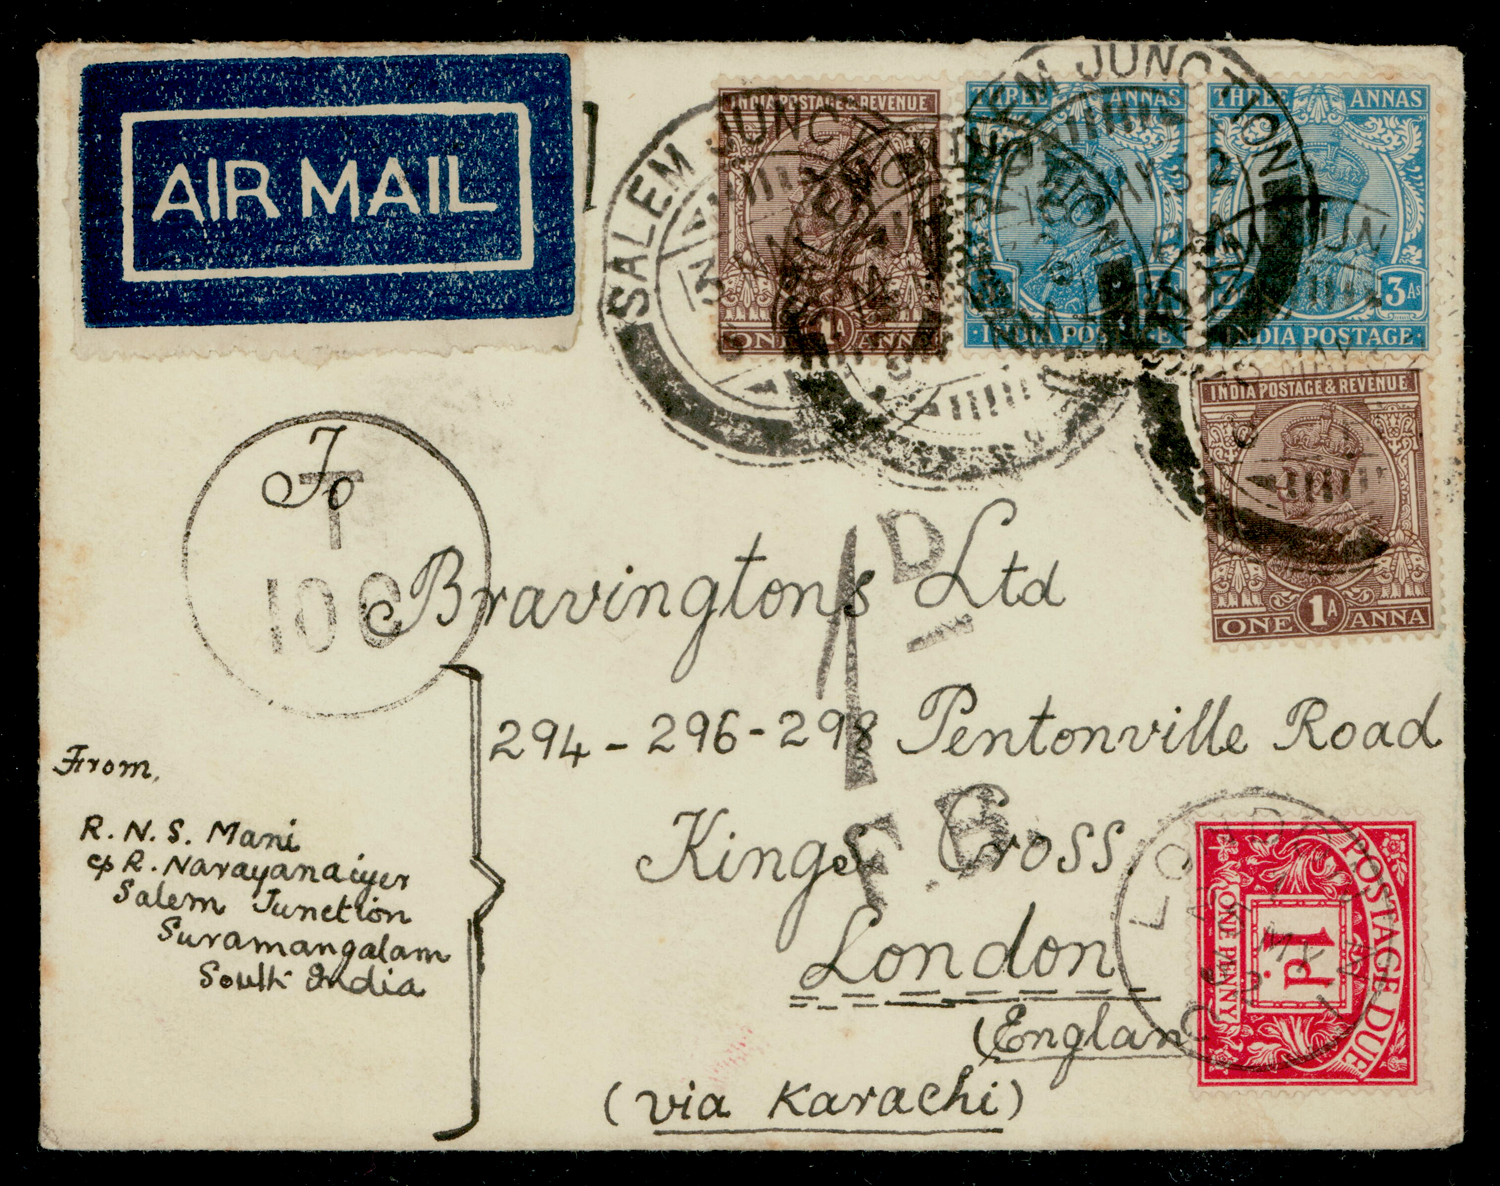 AIR MAIL
INDIA POSTAGE & REVENUE
ONE 1A ANNA
THREE ANNAS
INDIA POSTAGE
THREE ANNAS
3As
INDIA POSTAGE
INDIA POSTAGE & REVENUE
ONE 1A ANNA
SALEM JUNCTION
SALEM JUNCTION
To
T
10 C
1D
F.B.
Bravingtons Ltd
294 - 296 - 298 Pentonville Road
Kings Cross.
London
(Englan
(via Karachi)
From,
R. N. S. Mani
c/o R. Narayanaiyer
Salem Junction
Suramangalam
South India
POSTAGE DUE
1d
ONE PENNY
LONDON